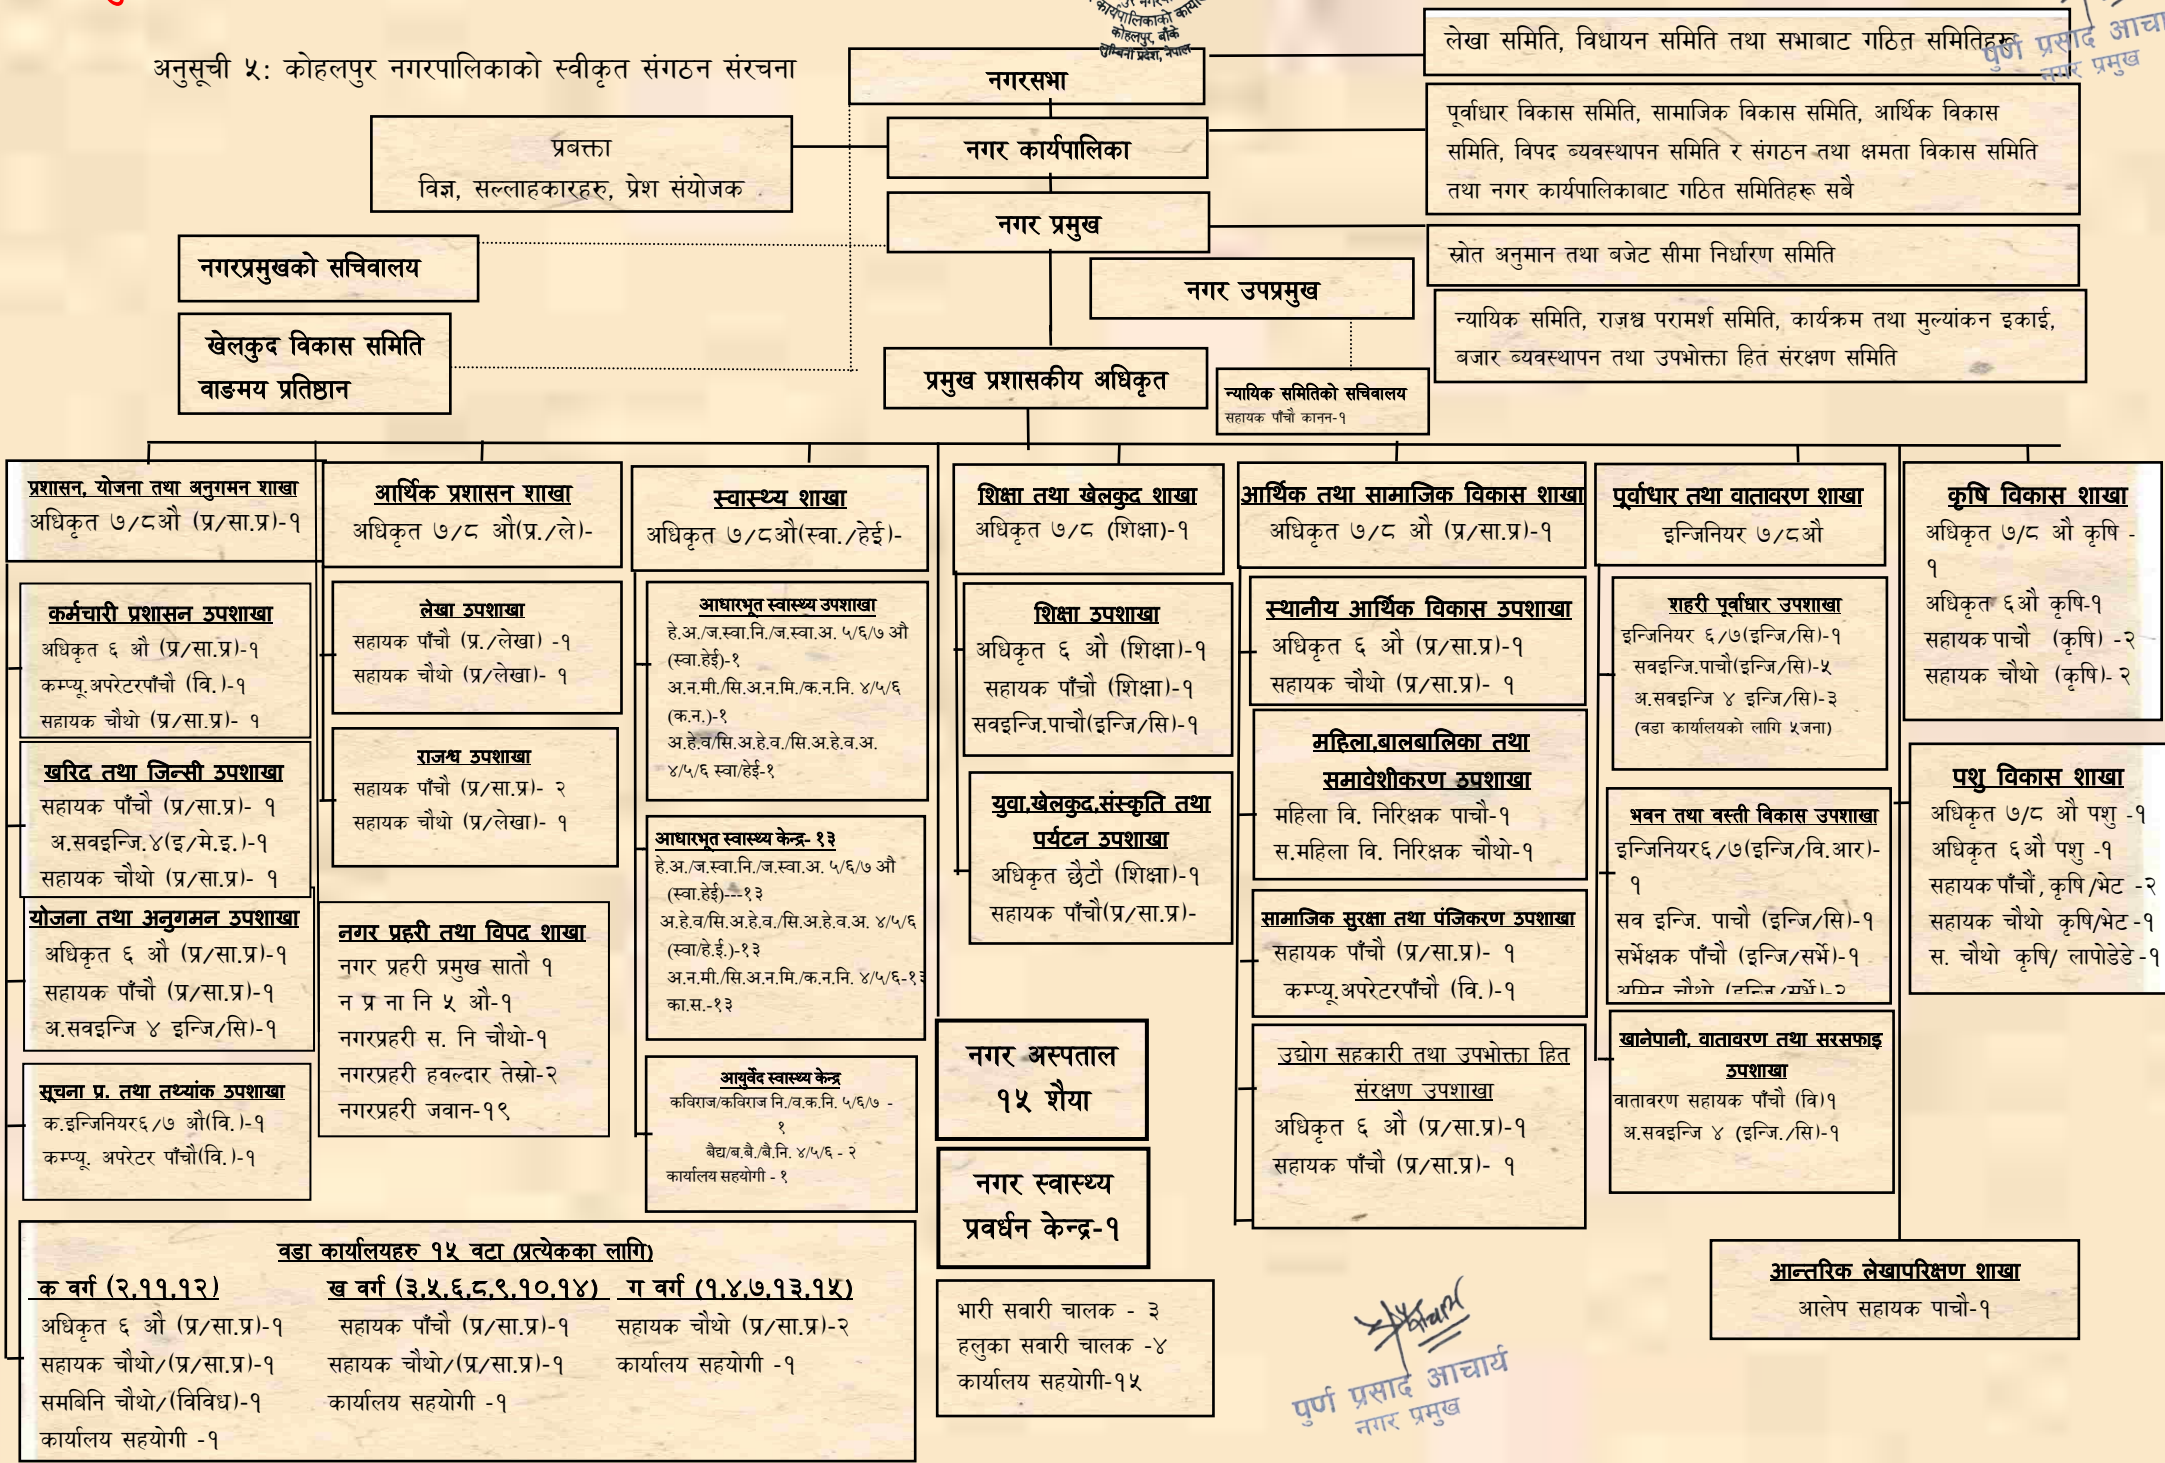 कार्यपालिकाको
कोहलपुर, बाँके
लुम्बिनी प्रदेश, नेपाल
अनुसूची ५: कोहलपुर नगरपालिकाको स्वीकृत संगठन संरचना
नगरसभा
लेखा समिति, विधायन समिति तथा सभाबाट गठित समितिहरू
पुर्ण प्रसाद
नगर प्रमुख
नगर कार्यपालिका
प्रबक्ता
विज्ञ, सल्लाहकारहरु, प्रेश संयोजक
पूर्वाधार विकास समिति, सामाजिक विकास समिति, आर्थिक विकास
समिति, विपद ब्यवस्थापन समिति र संगठन तथा क्षमता विकास समिति
तथा नगर कार्यपालिकाबाट गठित समितिहरू सबै
नगर प्रमुख
स्रोत अनुमान तथा बजेट सीमा निर्धारण समिति
नगरप्रमुखको सचिवालय
नगर उपप्रमुख
न्यायिक समिति, राजश्व परामर्श समिति, कार्यक्रम तथा मुल्यांकन इकाई,
बजार ब्यवस्थापन तथा उपभोक्ता हित संरक्षण समिति
खेलकुद विकास समिति
वाङमय प्रतिष्ठान
प्रमुख प्रशासकीय अधिकृत
न्यायिक समितिको सचिवालय
सहायक पाँचौ कानन-१
प्रशासन, योजना तथा अनुगमन शाखा
अधिकृत ७/८औ (प्र/सा.प्र)-१
कर्मचारी प्रशासन उपशाखा
अधिकृत ६ औ (प्र/सा.प्र)-१
कम्प्यू.अपरेटरपाँचौ (वि.)-१
सहायक चौथो (प्र/सा.प्र)- १
खरिद तथा जिन्सी उपशाखा
सहायक पाँचौ (प्र/सा.प्र)- १
अ.सवइन्जि.४(इ/मे.इ.)-१
सहायक चौथो (प्र/सा.प्र)- १
योजना तथा अनुगमन उपशाखा
अधिकृत ६ औ (प्र/सा.प्र)-१
सहायक पाँचौ (प्र/सा.प्र)-१
अ.सवइन्जि ४ इन्जि/सि)-१
सूचना प्र. तथा तथ्यांक उपशाखा
क.इन्जिनियर६/७ औ(वि.)-१
कम्प्यू. अपरेटर पाँचौ(वि.)-१
आर्थिक प्रशासन शाखा
अधिकृत ७/८ औ(प्र./ले)-
लेखा उपशाखा
सहायक पाँचौ (प्र./लेखा) -१
सहायक चौथो (प्र/लेखा)- १
राजश्व उपशाखा
सहायक पाँचौ (प्र/सा.प्र)- २
सहायक चौथो (प्र/लेखा)- १
नगर प्रहरी तथा विपद शाखा
नगर प्रहरी प्रमुख सातौ १
न प्र ना नि ५ औ-१
नगरप्रहरी स. नि चौथो-१
नगरप्रहरी हवल्दार तेस्रो-२
नगरप्रहरी जवान-१९
स्वास्थ्य शाखा
अधिकृत ७/८औ(स्वा./हेई)-
आधारभूत स्वास्थ्य उपशाखा
हे.अ./ज.स्वा.नि./ज.स्वा.अ. ५/६/७ औ
(स्वा.हेई)-१
अ.न.मी./सि.अ.न.मि./क.न.नि. ४/५/६
(क.न.)-१
अ.हे.व/सि.अ.हे.व./सि.अ.हे.व.अ.
४/५/६ स्वा/हेई-१
आधारभूत स्वास्थ्य केन्द्र- १३
हे.अ./ज.स्वा.नि./ज.स्वा.अ. ५/६/७ औ
(स्वा.हेई)---१३
अ.हे.व/सि.अ.हे.व./सि.अ.हे.व.अ. ४/५/६
(स्वा/हे.ई.)-१३
अ.न.मी./सि.अ.न.मि./क.न.नि. ४/५/६-१३
का.स.-१३
आयुर्वेद स्वास्थ्य केन्द्र
कविराज/कविराज नि./व.क.नि. ५/६/७ -
१
बैद्य/ब.बै./बै.नि. ४/५/६ - २
कार्यालय सहयोगी - १
शिक्षा तथा खेलकुद शाखा
अधिकृत ७/८ (शिक्षा)-१
शिक्षा उपशाखा
अधिकृत ६ औ (शिक्षा)-१
सहायक पाँचौ (शिक्षा)-१
सवइन्जि.पाचौ(इन्जि/सि)-१
युवा,खेलकुद,संस्कृति तथा
पर्यटन उपशाखा
अधिकृत छैटौ (शिक्षा)-१
सहायक पाँचौ(प्र/सा.प्र)-
नगर अस्पताल
१५ शैया
नगर स्वास्थ्य
प्रवर्धन केन्द्र-१
भारी सवारी चालक - ३
हलुका सवारी चालक -४
कार्यालय सहयोगी-१५
आर्थिक तथा सामाजिक विकास शाखा
अधिकृत ७/८ औ (प्र/सा.प्र)-१
स्थानीय आर्थिक विकास उपशाखा
अधिकृत ६ औ (प्र/सा.प्र)-१
सहायक चौथो (प्र/सा.प्र)- १
महिला,बालबालिका तथा
समावेशीकरण उपशाखा
महिला वि. निरिक्षक पाचौ-१
स.महिला वि. निरिक्षक चौथो-१
सामाजिक सुरक्षा तथा पंजिकरण उपशाखा
सहायक पाँचौ (प्र/सा.प्र)- १
कम्प्यू.अपरेटरपाँचौ (वि.)-१
उद्योग सहकारी तथा उपभोक्ता हित
संरक्षण उपशाखा
अधिकृत ६ औ (प्र/सा.प्र)-१
सहायक पाँचौ (प्र/सा.प्र)- १
पूर्वाधार तथा वातावरण शाखा
इन्जिनियर ७/८औ
शहरी पूर्वाधार उपशाखा
इन्जिनियर ६/७(इन्जि/सि)-१
सवइन्जि.पाचौ(इन्जि/सि)-५
अ.सवइन्जि ४ इन्जि/सि)-३
(वडा कार्यालयको लागि ५जना)
भवन तथा वस्ती विकास उपशाखा
इन्जिनियर६/७(इन्जि/वि.आर)-
१
सव इन्जि. पाचौ (इन्जि/सि)-१
सर्भेक्षक पाँचौ (इन्जि/सर्भे)-१
अमिन चौथो (इन्जि/सर्भे)-२
खानेपानी, वातावरण तथा सरसफाइ
उपशाखा
वातावरण सहायक पाँचौ (वि)१
अ.सवइन्जि ४ (इन्जि./सि)-१
कृषि विकास शाखा
अधिकृत ७/८ औ कृषि -
१
अधिकृत ६औ कृषि-१
सहायक पाचौ (कृषि) -२
सहायक चौथो (कृषि)- २
पशु विकास शाखा
अधिकृत ७/८ औ पशु -१
अधिकृत ६औ पशु -१
सहायक पाँचौं, कृषि /भेट -२
सहायक चौथो कृषि/भेट -१
स. चौथो कृषि/ लापोडेडे -१
आन्तरिक लेखापरिक्षण शाखा
आलेप सहायक पाचौ-१
वडा कार्यालयहरु १५ वटा (प्रत्येकका लागि)
क वर्ग (२,११,१२)
अधिकृत ६ औ (प्र/सा.प्र)-१
सहायक चौथो/(प्र/सा.प्र)-१
समबिनि चौथो/(विविध)-१
कार्यालय सहयोगी -१
ख वर्ग (३,५,६,८,९,१०,१४)
सहायक पाँचौ (प्र/सा.प्र)-१
सहायक चौथो/(प्र/सा.प्र)-१
कार्यालय सहयोगी -१
ग वर्ग (१,४,७,१३,१५)
सहायक चौथो (प्र/सा.प्र)-२
कार्यालय सहयोगी -१
पुर्ण प्रसाद आचार्य
नगर प्रमुख